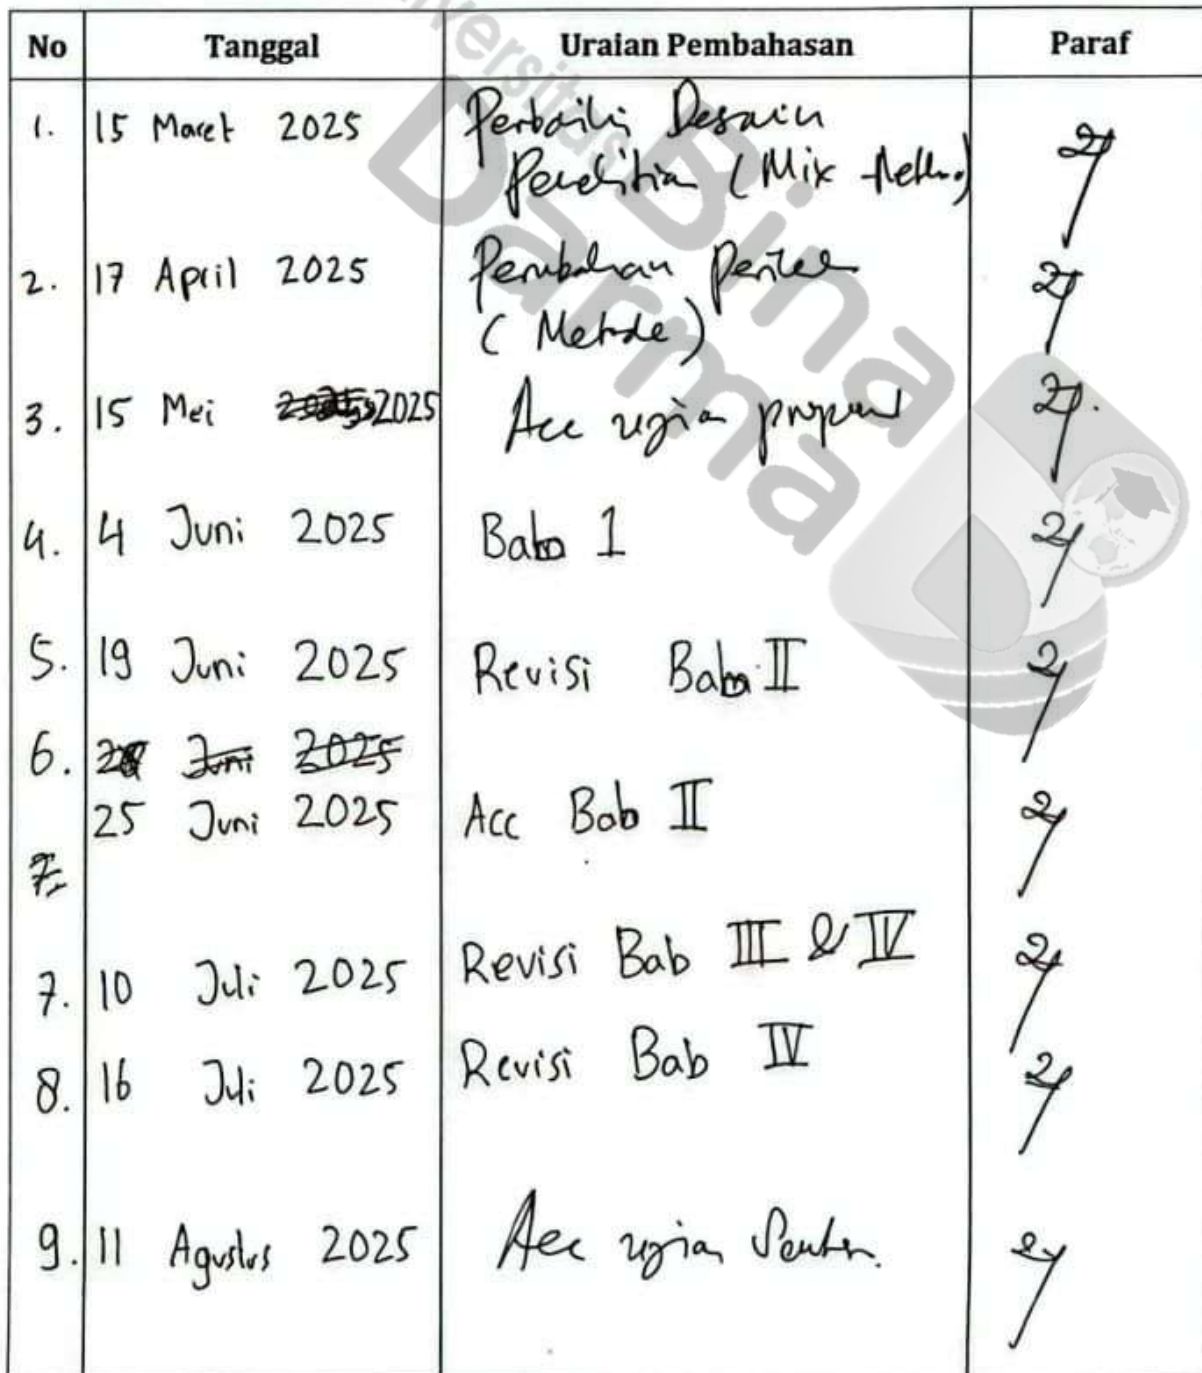 No Tanggal Uraian Pembahasan Paraf
1. 15 Maret 2025 Perbaiki Desain
Penelitian (Mix
2. 17 April 2025 Perubahan
(Metode)
3. 15 Mei 2025 Acc ujian proposal
4. 4 Juni 2025 Bab 1
5. 19 Juni 2025 Revisi Bab II
6. Juni 2025
25 Juni 2025 Acc Bab II
7.
7. 10 Juli 2025 Revisi Bab III & IV
8. 16 Juli 2025 Revisi Bab IV
9. 11 Agustus 2025 Acc ujian
Universitas
Bina
Darma